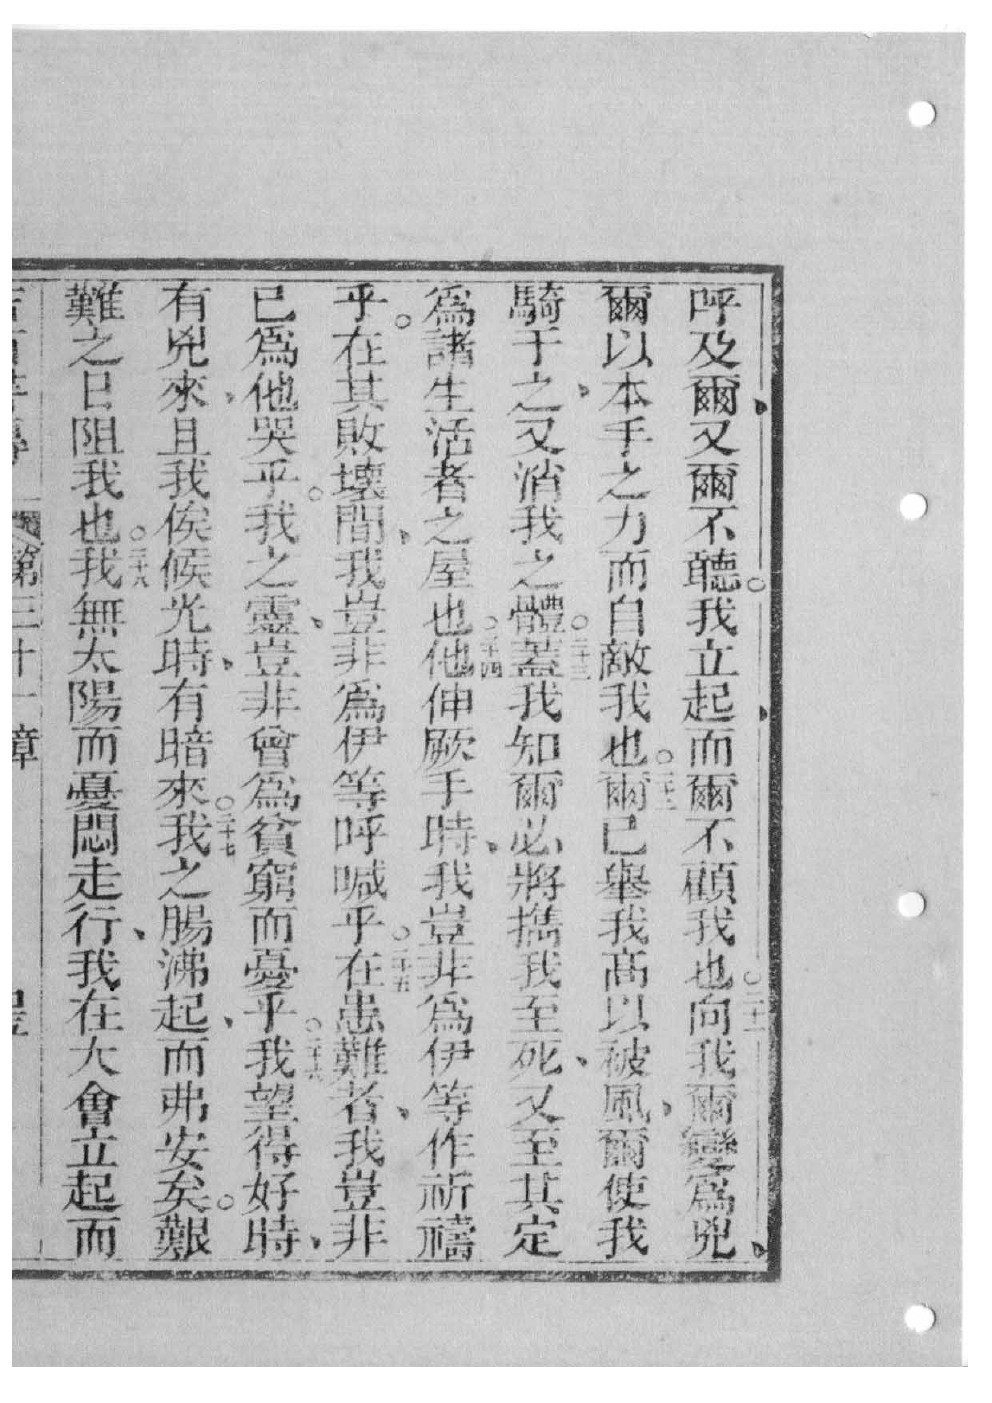 呼及爾、又爾不聽。我立起、而爾不顧我也。二十一向我爾變為兇、
爾以本手之力而自敵我也。二十二爾已舉我高以被風、爾使我
騎于之、又消我之體。二十三蓋我知爾必將擕我至死、又至其定
為諸生活者之屋也。二十四他伸厥手時、我豈非為伊等作祈禱
乎。在其敗壞間、我豈非為伊等呼喊乎。二十五在患難者、我豈非
已為他哭乎。我之靈、豈非曾為貧窮而憂乎。二十六我望得好時、
有兇來、且我俟候光時、有暗來。二十七我之腸沸起、而弗安矣。艱
難之日阻我也。二十八我無太陽而憂悶走行、我在大會立起而
第三十章